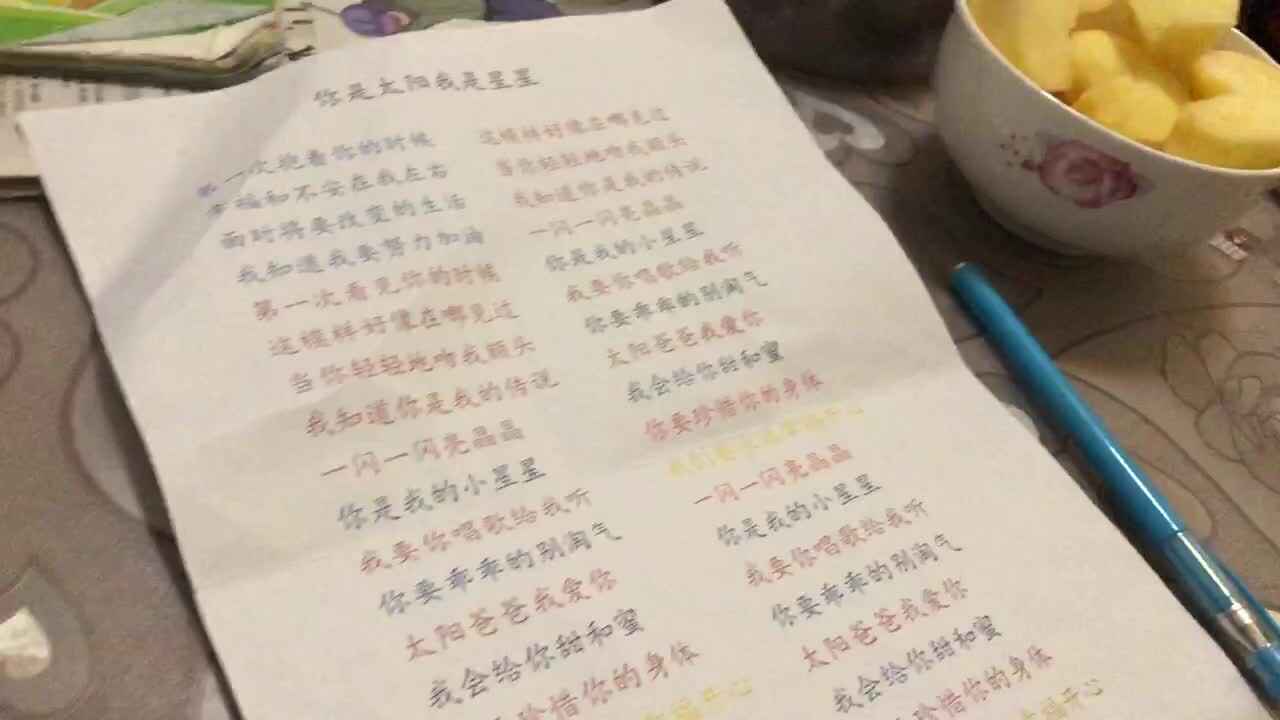 你是太阳我是星星
第一次抱着你的时候
幸福和不安在我左右
面对将要改变的生活
我知道我要努力加油
第一次看见你的时候
这模样好像在哪见过
当你轻轻地吻我额头
我知道你是我的传说
一闪一闪亮晶晶
你是我的小星星
我要你唱歌给我听
你要乖乖的别淘气
太阳爸爸我爱你
我会给你甜和蜜
珍惜你的身体
福开心
这模样好像在哪见过
当你轻轻地吻我额头
我知道你是我的传说
一闪一闪亮晶晶
你是我的小星星
我要你唱歌给我听
你要乖乖的别淘气
太阳爸爸我爱你
我会给你甜和蜜
你要珍惜你的身体
我们要永远幸福开心
一闪一闪亮晶晶
你是我的小星星
我要你唱歌给我听
你要乖乖的别淘气
太阳爸爸我爱你
我会给你甜和蜜
珍惜你的身体
福开心